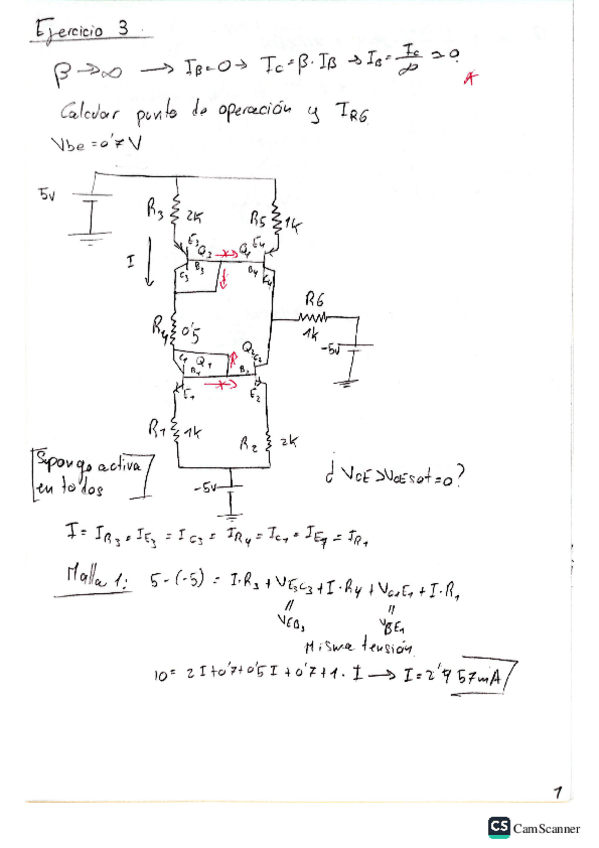 Ejercicio 3.
β → ∞ → IB=0 → Ic=β·IB → IB=Ic/∞ → 0
Calcular punto de operación y IR6
Vbe = 0'7V
5v
R3
2K
R5
1K
E3
Q3
Q4
E4
I
C3
B3
B4
C4
R6
1K
-5v
R4
0'5
Q2
C2
C1
Q1
B1
B2
E1
E2
R1
1K
R2
2K
Supongo activa
en todos
-5v
¿ VCE > VCEsat = 0?
I = IR3 = IE3 = IC3 = IR4 = IC1 = IE1 = IR1
Malla 1: 5-(-5) = I·R3 + VE3C3 + I·R4 + VC1E1 + I·R1
VEB3
VBE1
Misma tensión
10 = 2I+0'7+0'5I+0'7+1·I → I=2'457mA
1
CS CamScanner